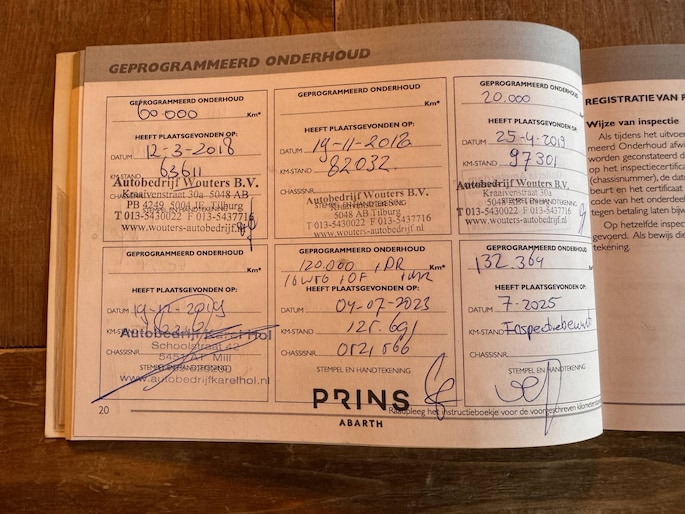 GEPROGRAMMEERD ONDERHOUD
GEPROGRAMMEERD ONDERHOUD
60.000 Km*
HEEFT PLAATSGEVONDEN OP:
DATUM 12-3-2018
KM-STAND 63611
CHASSISNR.
Autobedrijf Wouters B.V.
Kraaivenstraat 30a 5048 AB
STEMPEL EN HANDTEKENING
PB 4249, 5004 JE, Tilburg
T 013-5430022 F 013-5437716
www.wouters-autobedrijf.nl
GEPROGRAMMEERD ONDERHOUD
Km*
HEEFT PLAATSGEVONDEN OP:
DATUM 19-11-2018
KM-STAND 82032
CHASSISNR.
Autobedrijf Wouters B.V.
Kraaivenstraat 30a
STEMPEL EN HANDTEKENING
5048 AB Tilburg
T 013-5430022 F 013-5437716
www.wouters-autobedrijf.nl
GEPROGRAMMEERD ONDERHOUD
20.000 Km*
HEEFT PLAATSGEVONDEN OP:
DATUM 25-4-2019
KM-STAND 97301
CHASSISNR.
Autobedrijf Wouters B.V.
Kraaivenstraat 30a
STEMPEL EN HANDTEKENING
5048 AB Tilburg
T 013-5430022 F 013-5437716
www.wouters-autobedrijf.nl
GEPROGRAMMEERD ONDERHOUD
Km*
HEEFT PLAATSGEVONDEN OP:
DATUM 19-12-2019
KM-STAND
CHASSISNR.
Autobedrijf Karel Hol
Schoolstraat 42
5451 AT Mill
STEMPEL EN HANDTEKENING
www.autobedrijfkarelhol.nl
GEPROGRAMMEERD ONDERHOUD
120.000 1DR Km*
HEEFT PLAATSGEVONDEN OP:
DATUM 04-07-2023
KM-STAND 125.691
CHASSISNR.
STEMPEL EN HANDTEKENING
PRINS
ABARTH
GEPROGRAMMEERD ONDERHOUD
132.364 Km*
HEEFT PLAATSGEVONDEN OP:
DATUM 7-2025
KM-STAND Inspectiebeurt
CHASSISNR.
STEMPEL EN HANDTEKENING
20
Raadpleeg het instructieboekje voor de voorgeschreven
REGISTRATIE VAN
Wijze van inspectie
Als tijdens het uitvoe
meerd Onderhoud afwi
worden geconstateerd d
op het inspectiecertificat
(chassisnummer), de dat
beurt en het certificaat
code van het onderdeel
tegen betaling laten bijw
Op hetzelfde inspec
gevoerd. Als bewijs die
tekening.